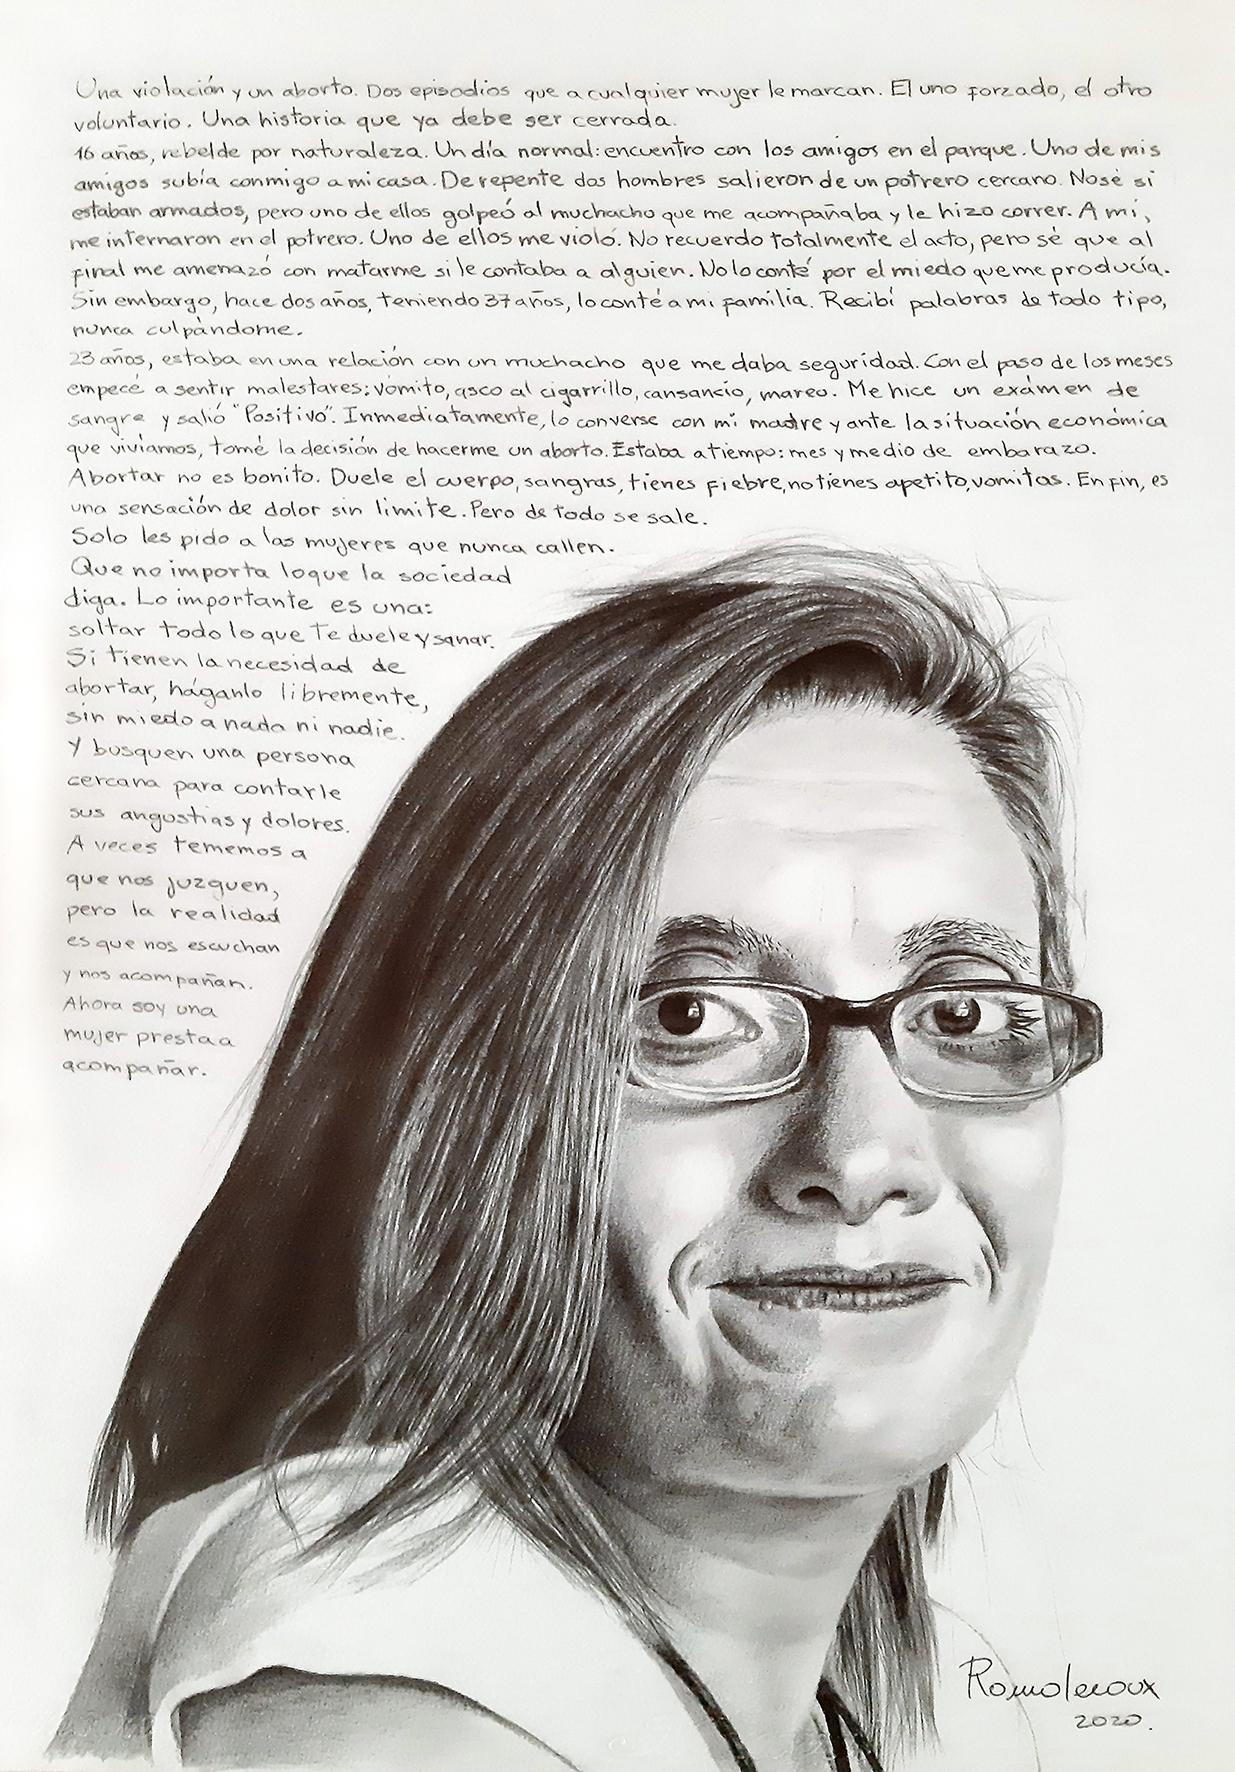 Una violación y un aborto. Dos episodios que a cualquier mujer le marcan. El uno forzado, el otro
voluntario. Una historia que ya debe ser cerrada.
16 años, rebelde por naturaleza. Un día normal: encuentro con los amigos en el parque. Uno de mis
amigos subía conmigo a mi casa. De repente dos hombres salieron de un potrero cercano. No sé si
estaban armados, pero uno de ellos golpeó al muchacho que me acompañaba y le hizo correr. A mí,
me internaron en el potrero. Uno de ellos me violó. No recuerdo totalmente el acto, pero sé que al
final me amenazó con matarme si le contaba a alguien. No lo conté por el miedo que me producía.
Sin embargo, hace dos años, teniendo 37 años, lo conté a mi familia. Recibí palabras de todo tipo,
nunca culpándome.
23 años, estaba en una relación con un muchacho que me daba seguridad. Con el paso de los meses
empecé a sentir malestares: vómito, asco al cigarrillo, cansancio, mareo. Me hice un exámen de
sangre y salió "Positivo". Inmediatamente, lo converse con mi madre y ante la situación económica
que vivíamos, tomé la decisión de hacerme un aborto. Estaba a tiempo: mes y medio de embarazo.
Abortar no es bonito. Duele el cuerpo, sangras, tienes fiebre, no tienes apetito, vomitas. En fin, es
una sensación de dolor sin limite. Pero de todo se sale.
Solo les pido a las mujeres que nunca callen.
Que no importa lo que la sociedad
diga. Lo importante es una:
soltar todo lo que te duele y sanar.
Si tienen la necesidad de
abortar, háganlo libremente,
sin miedo a nada ni nadie.
Y busquen una persona
cercana para contarle
sus angustias y dolores.
A veces tememos a
que nos juzguen,
pero la realidad
es que nos escuchan
y nos acompañan.
Ahora soy una
mujer presta a
acompañar.
Romoleroux
2020.